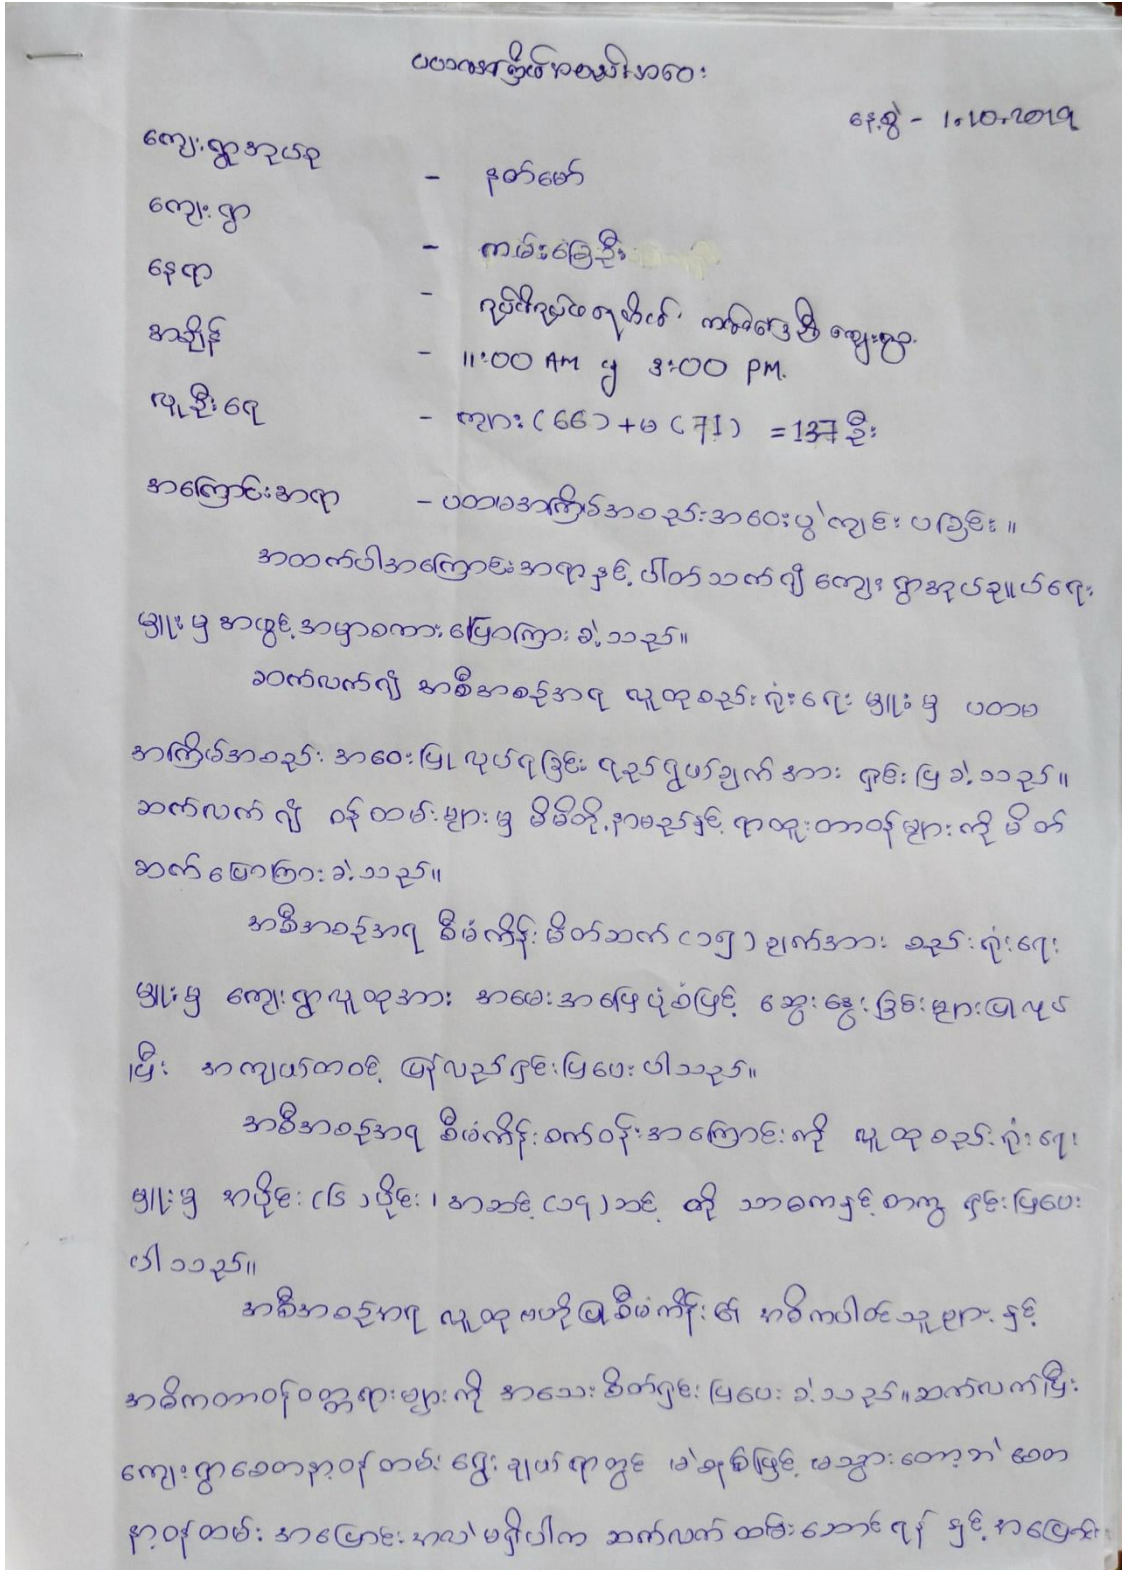 ပထမအကြိမ်အစည်းအဝေး
နေ့စွဲ - 1.10.2019
ကျေးရွာအုပ်စု - နတ်မော်
ကျေးရွာ - ကမ်းခြေဦး
နေရာ - ကျေးရွာ
အချိန် - 11:00 AM မှ 3:00 PM.
လူဦးရေ - ကျား (66) + မ (71) = 137 ဦး
အကြောင်းအရာ - ပထမအကြိမ်အစည်းအဝေးပွဲကျင်းပခြင်း။
အထက်ပါအကြောင်းအရာနှင့်ပါတ်သက်၍ ကျေးရွာအုပ်ချုပ်ရေး
မှူးမှ အဖွင့်အမှာစကားပြောကြားခဲ့သည်။
ဆက်လက်၍ အစီအစဉ်အရ လူထုစည်းရုံးရေးမှူးမှ ပထမ
အကြိမ်အစည်းအဝေးပြုလုပ်ရခြင်း ရည်ရွယ်ချက်အား ရှင်းပြခဲ့သည်။
ဆက်လက်၍ ဝန်ထမ်းများမှ မိမိတို့နာမည်နှင့် ရာထူးတာဝန်များကို မိတ်
ဆက်ပြောကြားခဲ့သည်။
အစီအစဉ်အရ စီမံကိန်းမိတ်ဆက် (၁၅) ချက်အား စည်းရုံးရေး
မှူးမှ ကျေးရွာလူထုအား အမေးအဖြေပုံစံဖြင့် ဆွေးနွေးခြင်းများပြုလုပ်
ပြီး အကျယ်တဝင့် ပြန်လည်ရှင်းပြပေးပါသည်။
အစီအစဉ်အရ စီမံကိန်းစက်ဝန်းအကြောင်းကို လူထုစည်းရုံးရေး
မှူးမှ အပိုင်း (၆) ပိုင်း၊ အဆင့် (၁၇) ဆင့် ကို သာဓကနှင့်တကွ ရှင်းပြပေး
ပါသည်။
အစီအစဉ်အရ လူထုဗဟိုပြုစီမံကိန်း၏ အဓိကပါဝင်သူများနှင့်
အဓိကတာဝန်ဝတ္တရားများကို အသေးစိတ်ရှင်းပြပေးခဲ့သည်။ ဆက်လက်ပြီး
ကျေးရွာစေတနာ့ဝန်ထမ်းရွေးချယ်ရာတွင် မဲစနစ်ဖြင့် မသွားတော့ဘဲ စေတ
နာ့ဝန်ထမ်း အပြောင်းအလဲမရှိပါက ဆက်လက်ထမ်းဆောင်ရန်နှင့် အပြောင်း